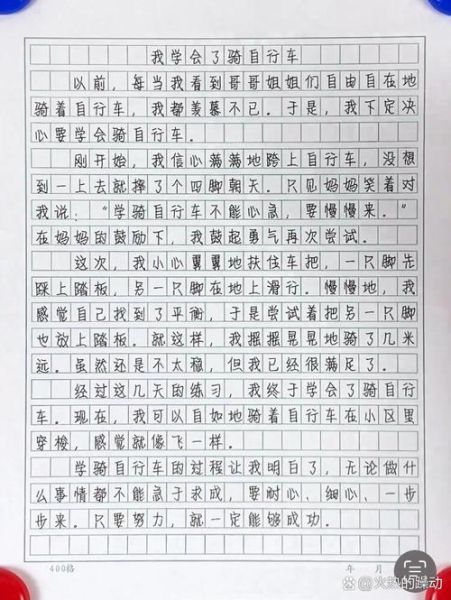 我学会了骑自行车
以前，每当我看到哥哥姐姐们自由自在地
骑着自行车，我都羡慕不已。于是，我下定决
心要学会骑自行车。
刚开始，我信心满满地跨上自行车，没想
到一上去就摔了个四脚朝天。只见妈妈笑着对
我说：“学骑自行车不能心急，要慢慢来。”
在妈妈的鼓励下，我鼓起勇气再次尝试。
这次，我小心翼翼地扶住车把，一只脚先
踩上踏板，另一只脚在地上滑行。慢慢地，我
感觉自己找到了平衡，于是尝试着把另一只脚
也放上踏板。就这样，我摇摇晃晃地骑了几米
远。虽然还是不太稳，但我已经很满足了。
经过这几天的练习，我终于学会了骑自行
车。现在，我可以自如地骑着自行车在小区里
穿梭，感觉就像飞一样。
学骑自行车的过程让我明白了，无论做什
么事情都不能急于求成，要耐心、细心、一步
步来。只要努力，就一定能够成功。
400格 年 月
@火热的躁动